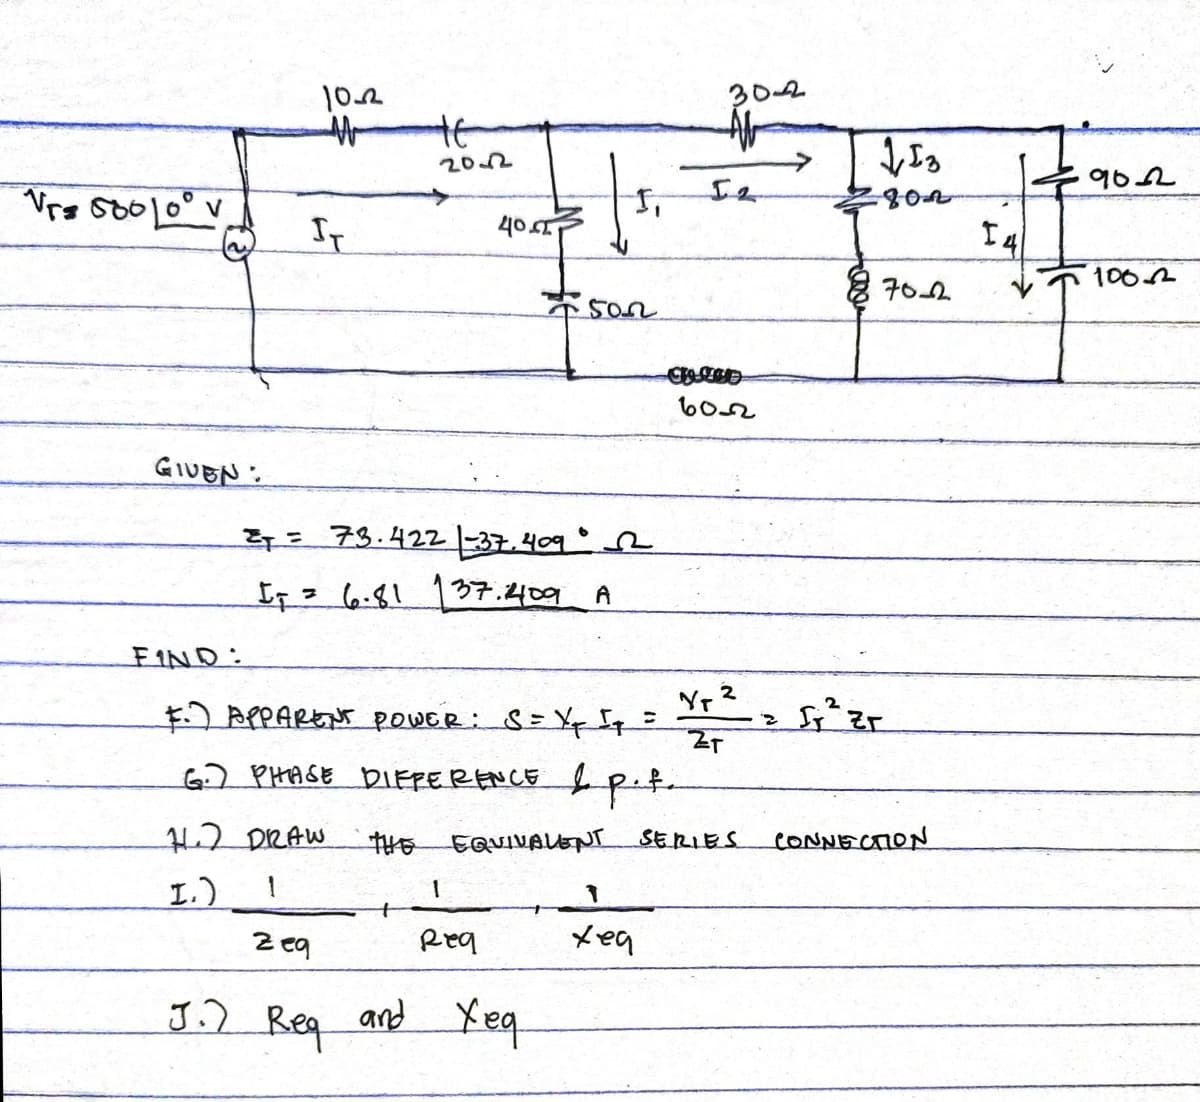 10Ω
30Ω
20Ω
↓I3
90Ω
VT= 500∠0° V
IT
40Ω
I1
I2
80Ω
I4
50Ω
70Ω
100Ω
60Ω
GIVEN:
ZT = 73.422 ∠-37.409° Ω
IT = 6.81 ∠37.409 A
FIND:
F.) APPARENT POWER: S = VT IT = VT²/ZT = IT² ZT
G.) PHASE DIFFERENCE & p.f.
H.) DRAW THE EQUIVALENT SERIES CONNECTION
I.) 1/Zeq , 1/Req , 1/Xeq
J.) Req and Xeq